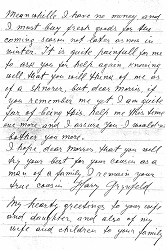 Meanwhile I have no money and
I must buy fresh goods for the
coming season not later as one in
winter. It is quite painfull for me
to ask you for help again, knowing
well that you will think of me as
of a shnorer, but dear morris, if
you remember me yet, I am quite
far of being this, help me this time
one more and I assure you I would
bother you more.
I hope dear morris that you will
try your best for your cousin as a
man of a family. I remain your
true cousin Harry
My hearty greetings to your wife
and daughter and also of my
wife and children to your family